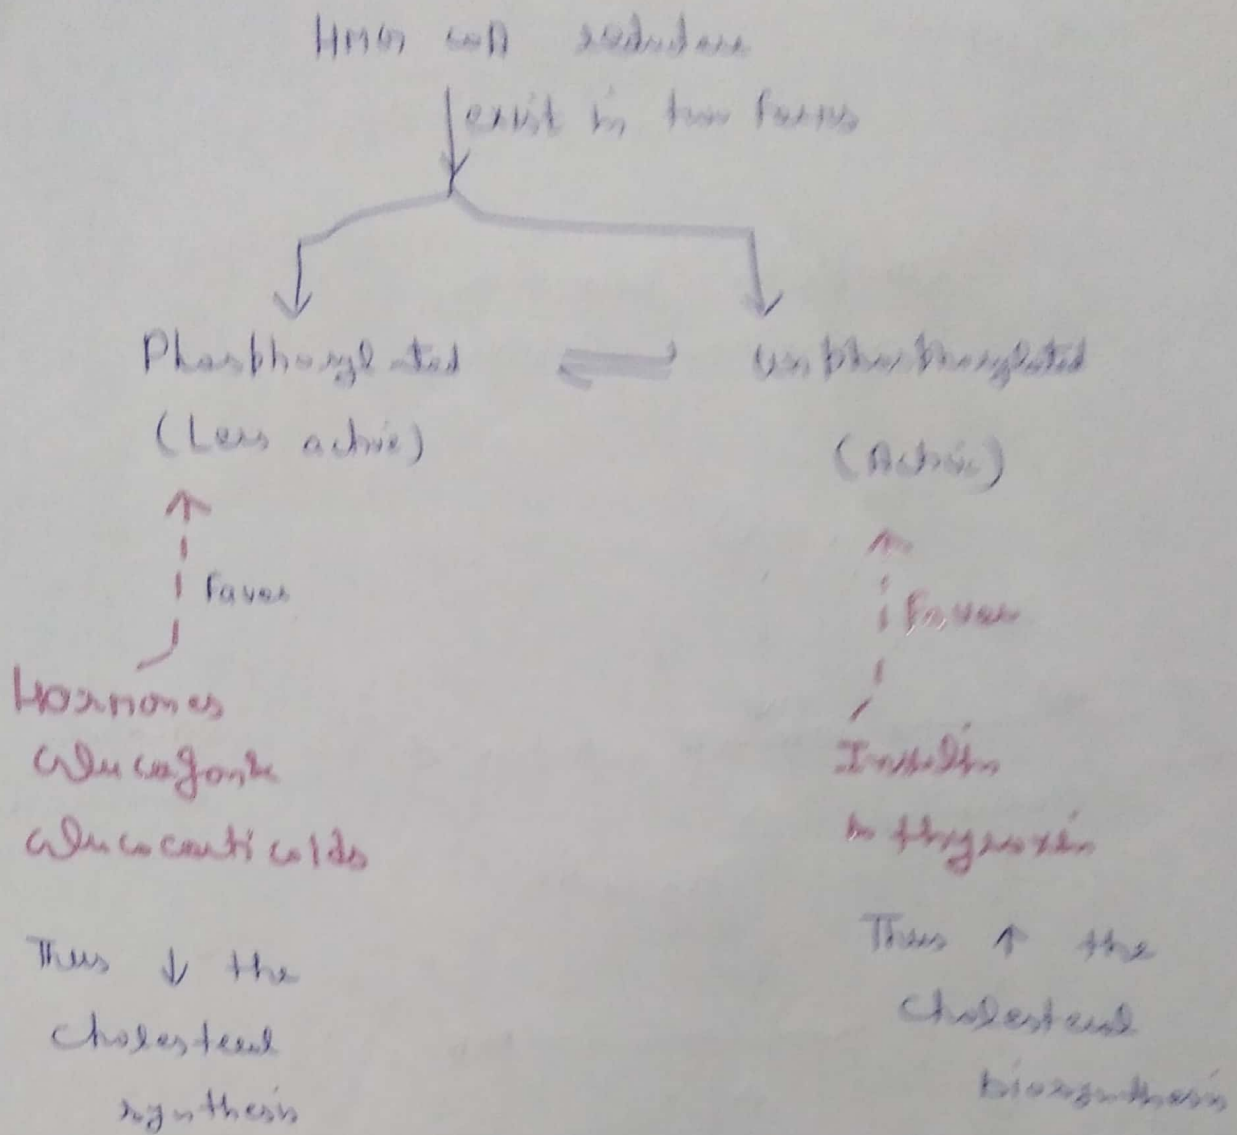 HMG CoA reductase
exist in two forms
Phosphorylated
Unphosphorylated
(Less active)
(Active)
Favor
Favor
Hormones
Glucagon &
Glucocorticoids
Insulin
& thyroxin
Thus ↓ the
cholesterol
synthesis
Thus ↑ the
cholesterol
biosynthesis